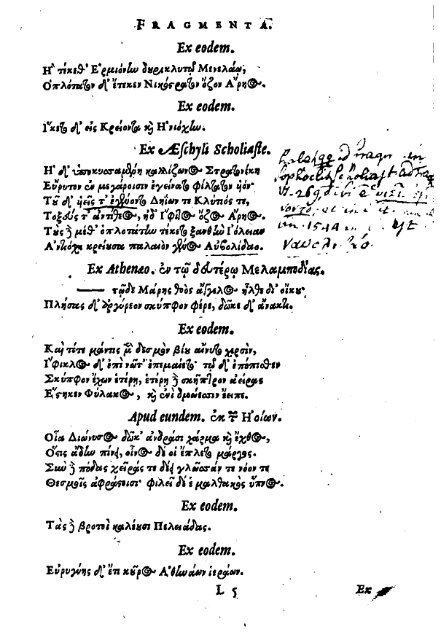 FRAGMENTA.
Ex eodem.
Ἣ τίκεθ' Ἑρμιόνην δουρικλυτῷ Μενελάῳ,
Ὁπλότατον δ' ἔτεκεν Νικόστρατον ὄζον Ἄρηος.
Ex eodem.
Ἵκετο δ' εἰς Κρείοντα καὶ Ἡνιόχην.
Ex Æschyli Scholiaste.
Ἡ δ' ὑποκυσσαμένη καλλίζωνος Στρατονίκη
Εὔρυτον ἐν μεγάροισιν ἐγείνατο φίλτατον υἱόν
Τοῦ δ' υἱεῖς τ' ἐγένοντο Δηίων τε Κλύτιός τε,
Τοξεύς τ' ἀντίθεος, ἠδ' Ἴφιτος ὄζος Ἄρηος.
Τοὺς δὲ μέθ' ὁπλοτάτην τίκετο ξανθὴν Ἰόλειαν
Ἀντιόχη κρείουσα παλαιὸν γένος Αὐβολίδαο.
Ex Athenæo. ἐν τῷ δευτέρῳ Μελαμποδίας.
τῷ δὲ Μάρης θοὸς ἄγγελος ἦλθε δι' οἴκου
Πλήσας δ' ἀργύρεον σκύπφον φέρε, δῶκε δ' ἄνακτι.
Ex eodem.
Καὶ τότε μάντις μὲν δεσμὸν βίου αἴνυτο χερσὶν,
Ἴφικλος δ' ἐπὶ νῶτ' ἐπεμαίετο· τῷ δ' ἐπόπισθεν
Σκύπφον ἔχων ἑτέρῃ, ἑτέρῃ δὲ σκῆπτρον ἀείρας
Ἔστηκεν Φύλακος, καὶ ἐνὶ δμώεσσιν ἔειπε.
Apud eundem. ἐκ τῶν Ἠοίων.
Οἷα Διόνυσος δῶκ' ἀνδράσι χάρμα καὶ ἔχθος,
Ὅστις ἄδην πίνῃ, οἶνος δέ οἱ ἔπλετο μάργος.
Σὺν δὲ πόδας χεῖράς τε δέει γλῶσσάν τε νόον τε
Δεσμοῖς ἀφράστοισι· φιλεῖ δέ ἑ μαλθακὸς ὕπνος.
Ex eodem.
Τὰς δὲ βροτοὶ καλέουσι Πελειάδας.
Ex eodem.
Εὐρυγύης δ' ἔτι κοῦρος Ἀθηναίων ἱεράων.
L 5
Ex